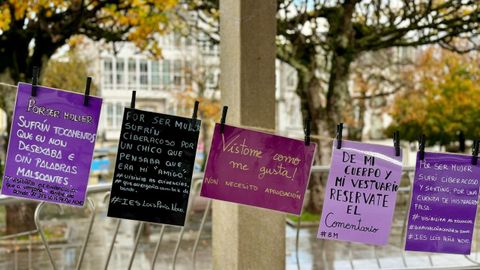 POR SER MULLER
SUFRÍN TOCAMENTOS
QUE EU NON
DESEXABA E
DIN PALABRAS
MALSOANTES
POR SER MULLER
SUFRÍN
CIBERACOSO
POR UN CHICO
QUE PENSABA QUE
ERA MI "AMIGO"
#IES LOIS PEÑA NOVO
Vístome como
me gusta!
NON NECESITO APROBACIÓN
DE MI
CUERPO Y
MI VESTUARIO
RESERVATE
EL
Comentario
#8M
POR SER MULLER
SUFRÍN CIBERACOSO
Y SEXTING POR
UNHA
CUENTA DE INSTAGRAM
FALSA.
#VISIBILIZA
#IES LOIS PEÑA NOVO